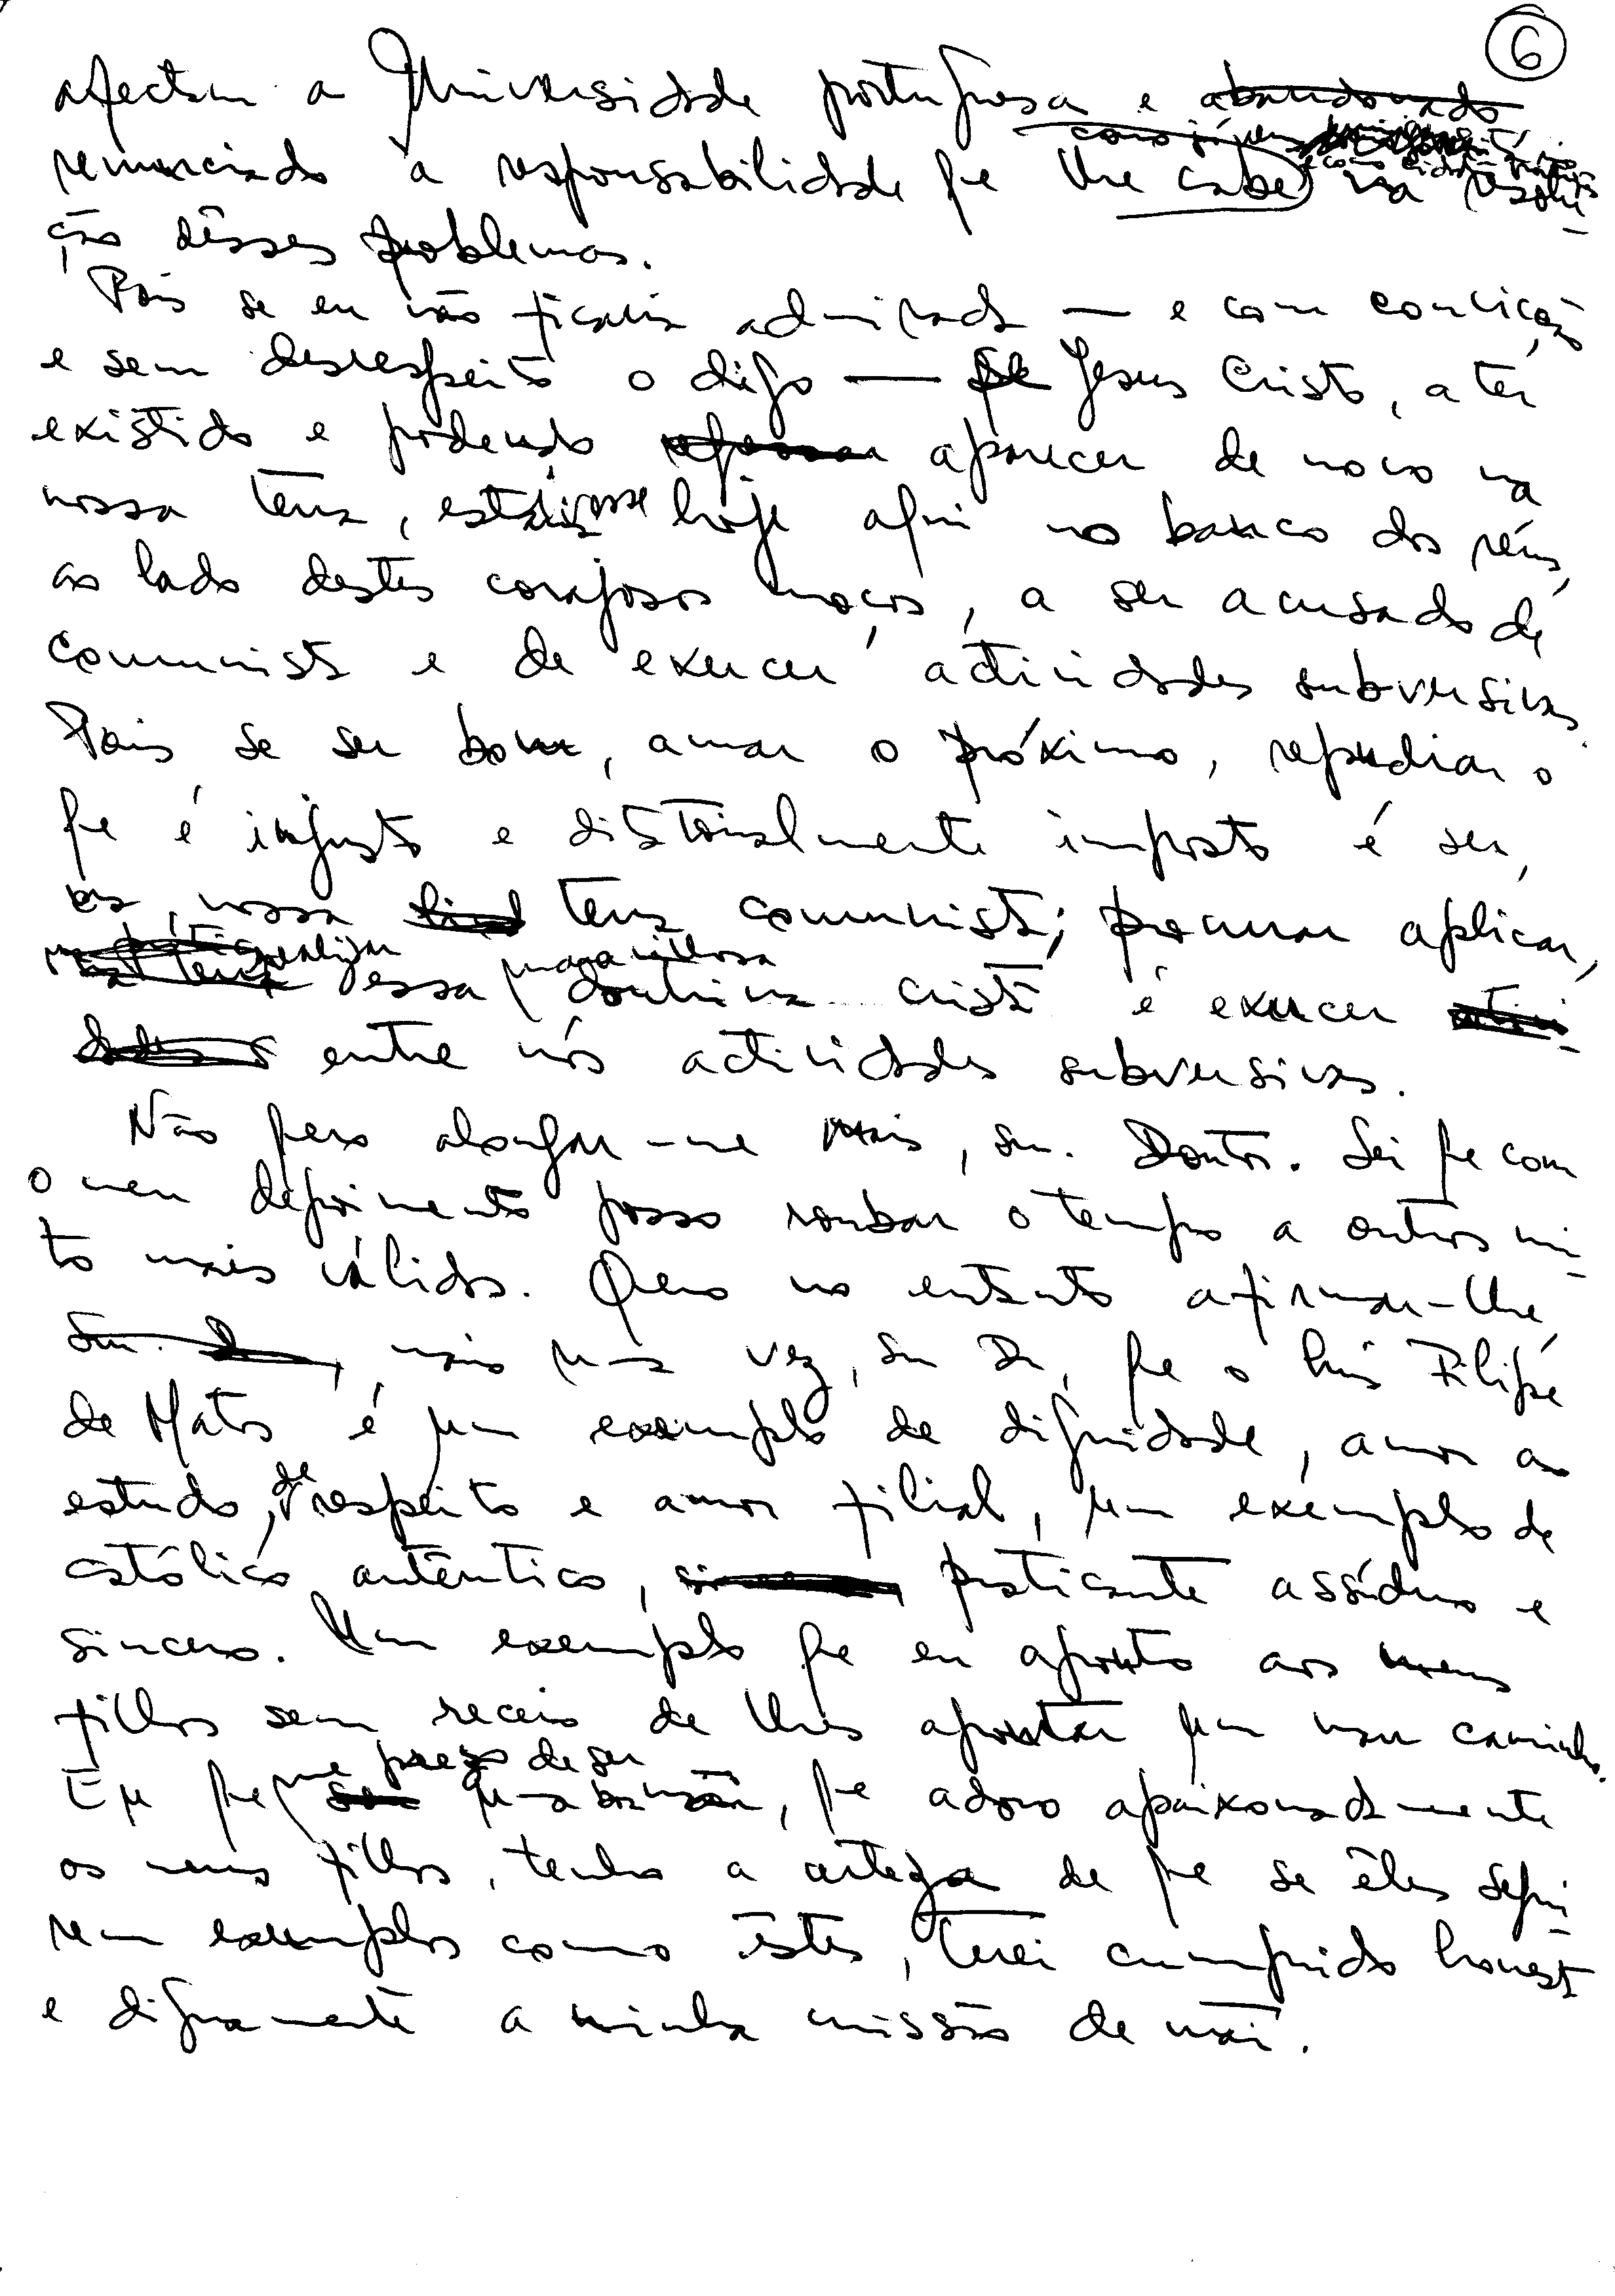 6
afectam a Universidade portuguesa e abandonado
como jovem
e como cidadão
renunciado à responsabilidade que lhe cabe na resolu-
ção dêsses problemas.
Pois se eu não ficaria admirada — e com convicção
e sem desrespeito o digo — se Jesus Cristo, a ter
existido e podendo aparecer de novo na
nossa terra, estivesse hoje aqui no banco dos réus,
ao lado destes corajosos moços, a ser acusado de
comunista e de exercer actividades subversivas.
Pois se ser bom, amar o próximo, repudiar o
que é injusto e ditatorialmente imposto é ser,
na nossa terra comunista; procurar aplicar,
realizar essa maravilhosa doutrina cristã é exercer activi-
dades entre nós actividades subversivas.
Não quero alongar-me mais, sr. Doutor. Sei que com
o meu depoimento posso roubar o tempo a outros mi-
to mais válidos. Quero no entanto afirmar-lhe
Sr. Dr., mais uma vez, Sr Dr, que o Luís Filipe
de Matos é um exemplo de dignidade, amor ao
estudo, de respeito e amor filial, um exemplo de
católico autêntico, praticante assíduo e
sincero. Um exemplo que eu aponto aos meus
filhos sem receio de lhes apontar um mau caminho.
Eu que me prezo de ser uma boa mãe, que adoro apaixonadamente
os meus filhos, tenho a certeza de que se êles segui-
rem exemplos como êstes, terei cumprido honesta
e dignamente a minha missão de mãi.